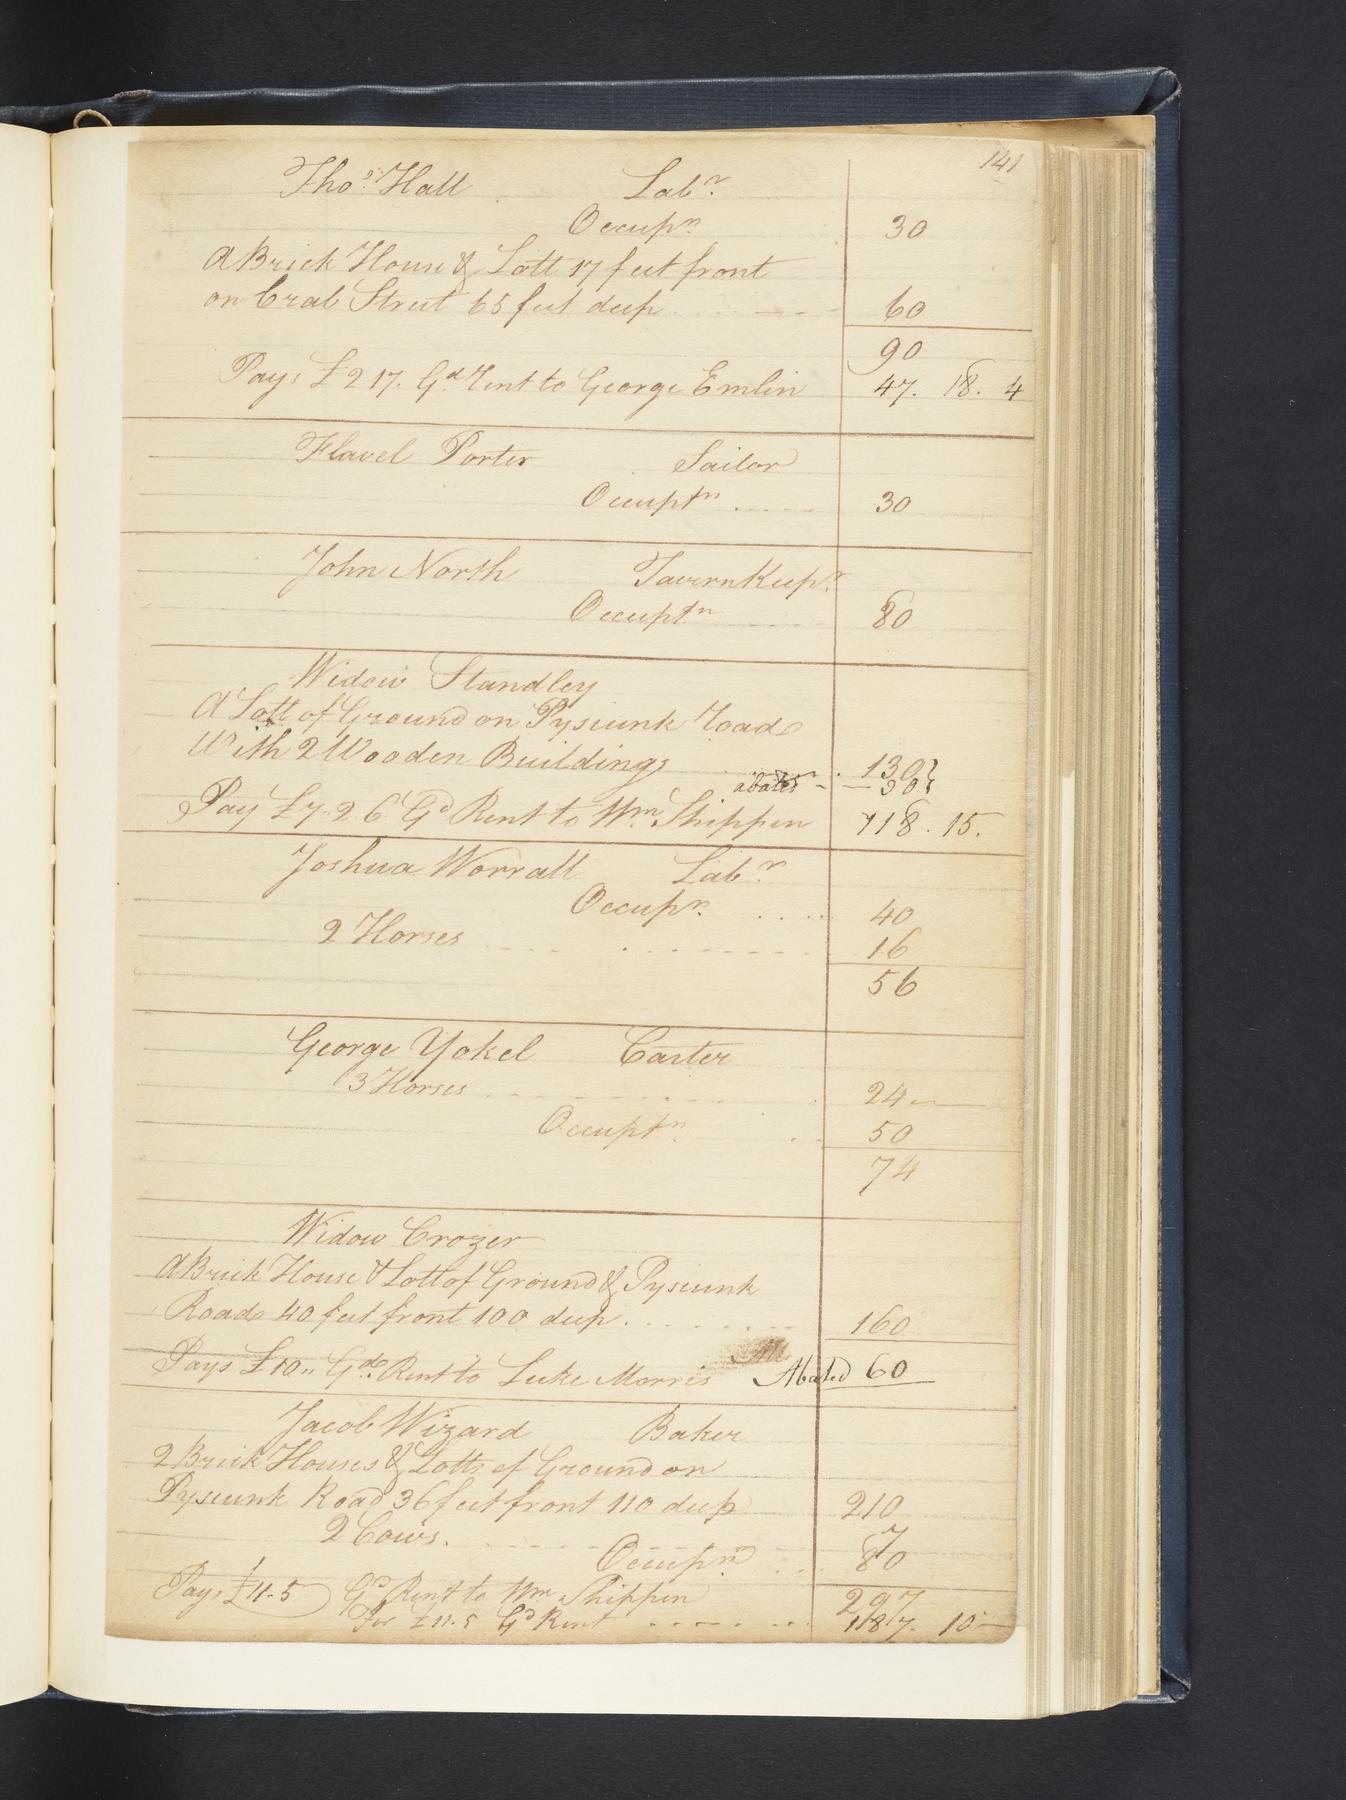 141
Thos. Hall Labr.
Occupn. 30
A Brick House & Lott 17 feet front
on Crab Street 65 feet deep 60
90
Pays £2 17. Gd. Rent to George Emlin 47. 18. 4
Flavel Porter Sailor
Occuptn 30
John North Tavern Keepr.
Occuptn 80
Widow Standley
A Lott of Ground on Pyseunk Road
With 2 Wooden Buildings 130
abated - 30
Pay £7. 2. 6 Gd Rent to Wm. Shippen 118. 15.
Joshua Worrall Labr.
Occupn. 40
2 Horses 16
56
George Yokel Carter
3 Horses 24
Occuptn. 50
74
Widow Crozer
A Brick House & Lott of Ground & Pyseunk
Road 40 feet front 100 deep. 160
Pays £10,, Gd. Rent to Luke Morris Abated 60
Jacob Wizard Baker
2 Brick Houses & Lotts of Ground on
Pyseunk Road 36 feet front 110 deep 210
2 Cows. 7
Occupn 80
Pays £11-5 Gd Rent to Wm Shippen 297
For £11.5 Gd Rent 187. 10